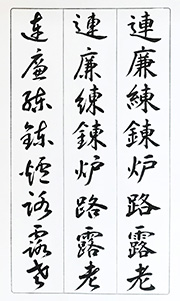 連廉練鍊炉路露老
連廉練鍊炉路露老
連廉練鍊炉路露老